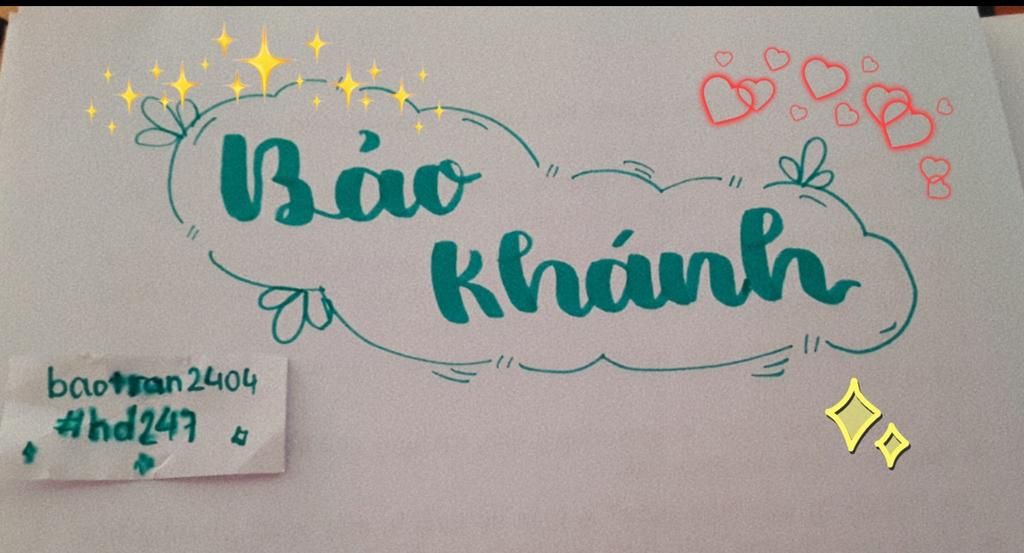 Bảo
Khánh
baotran2404
#hd247